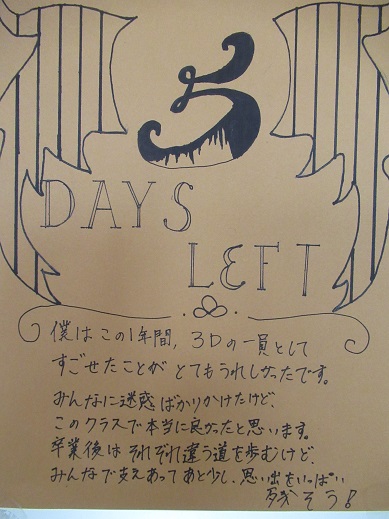 5
DAYS
LEFT
僕はこの1年間, 3Dの一員として
すごせたことが とてもうれしかったです。
みんなに迷惑ばかりかけたけど、
このクラスで本当に良かったと思います。
卒業後は それぞれ違う道を歩むけど、
みんなで支えあって あと少し、思い出をいっぱい
残そう!